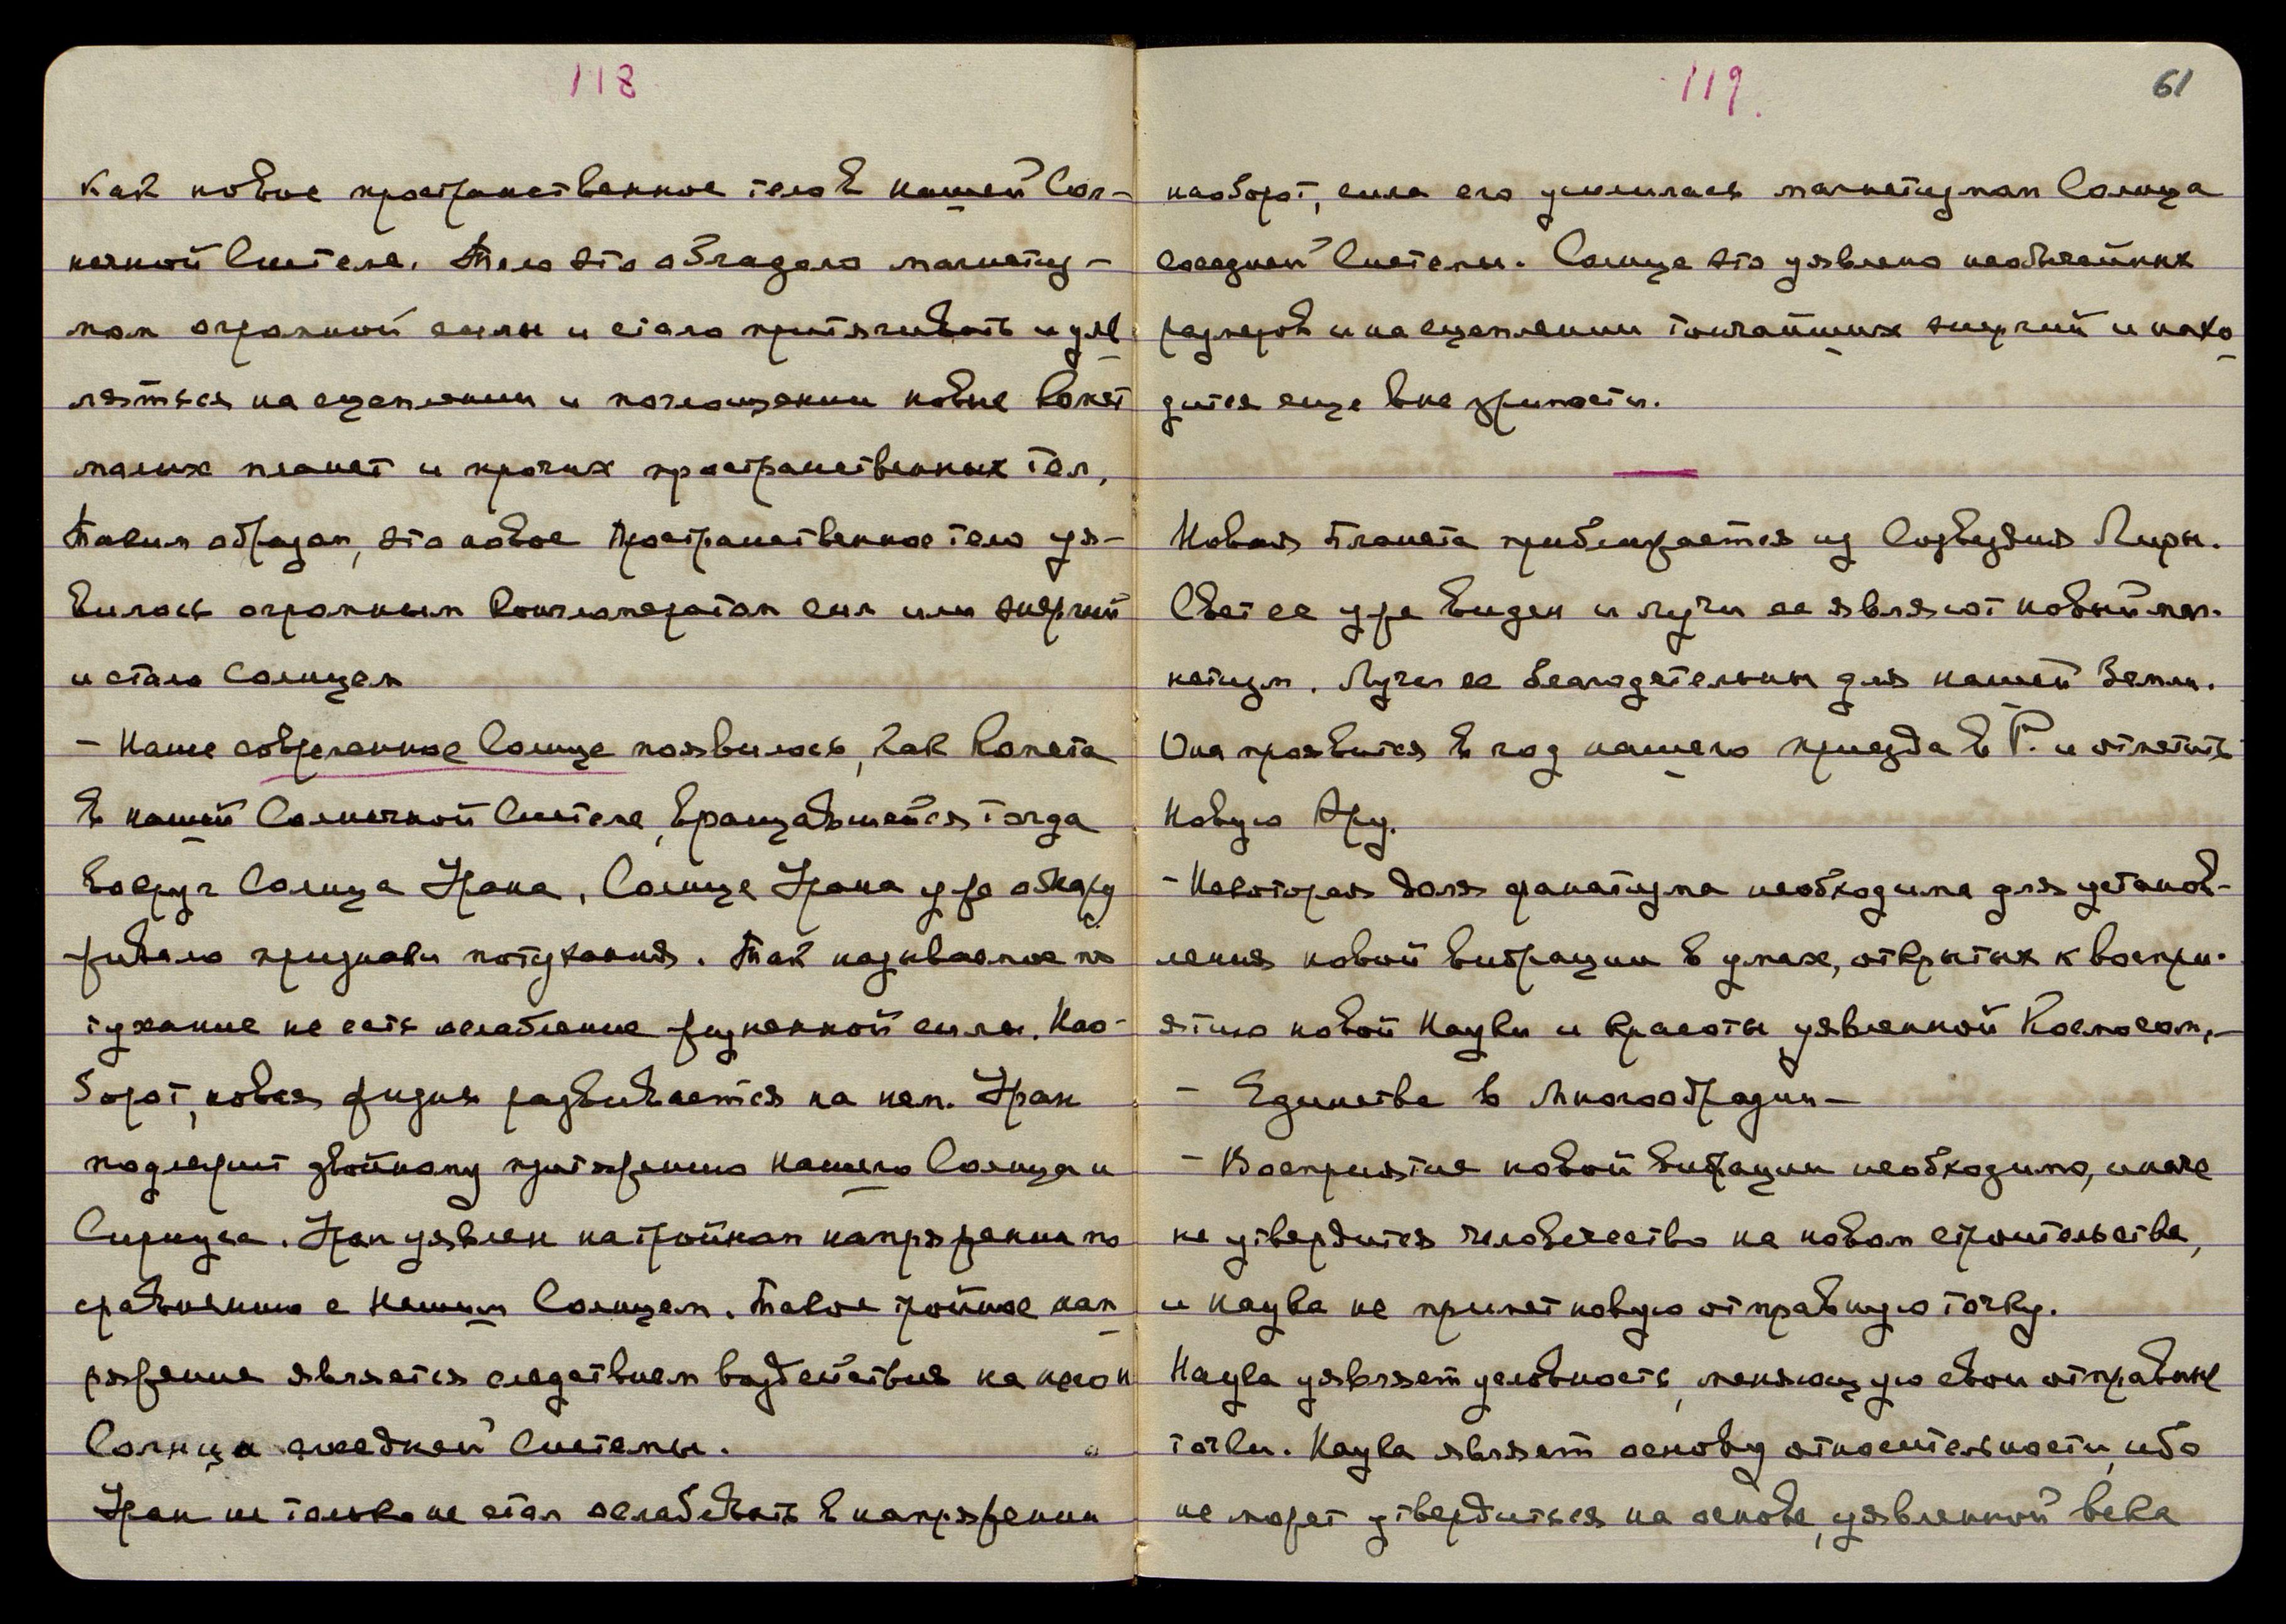 118
как новое пространственное тело в нашей Сол-
нечной Системе. Тело это обладало магнетиз-
мом огромной силы и стало притягивать и уяв
ляться на сцеплении и поглощении новых комет
малых планет и прочих пространственных тел,
Таким образом, это новое Пространственное тело уя-
вилось огромным конгломератом сил или энергий
и стало Солнцем
- Наше современное Солнце появилось, как Комета
в нашей Солнечной Системе, вращавшейся тогда
вокруг Солнца Урана. Солнце Урана уже обнару
живало признаки потухания. Так называемое по
тухание не есть ослабление жизненной силы. Нао-
борот, новая жизнь развивается на нем. Уран
подлежит двойному притяжению нашего Солнца и
Сириуса. Уран уявлен на тройном напряжении по
сравнению с нашим Солнцем. Такое тройное нап
ряжение является следствием воздействия на него и
Солнца соседней Системы.
Уран не только не стал ослабевать в напряжении
119.
61
наоборот, сила его усилилась магнетизмом Солнца
соседней Системы. Солнце это уявлено необычайных
размеров и на сцеплении тончайших энергий и нахо
дится еще вне зримости.
Новая Планета приближается из Созвездия Лиры.
Свет ее уже виден и лучи ее являют новый маг-
нетизм. Лучи ее благодетельны для нашей Земли.
Она проявится в год нашего приезда в Р. и отметить
Новую Эру.
- Некоторая доля фанатизма необходима для установ-
ления новой вибрации в умах, открытых к воспри-
ятию новой Науки и Красоты уявленной Космосом,-
- Единства в Многообразии-
- Восприятие новой вибрации необходимо, иначе
не утвердится человечество на новом строительстве,
и наука не примет новую отправную точку.
Наука уявляет условность, меняющую свои отправные
точки. Наука являет основу относительности, ибо
не может утвердиться на основе, уявленной века